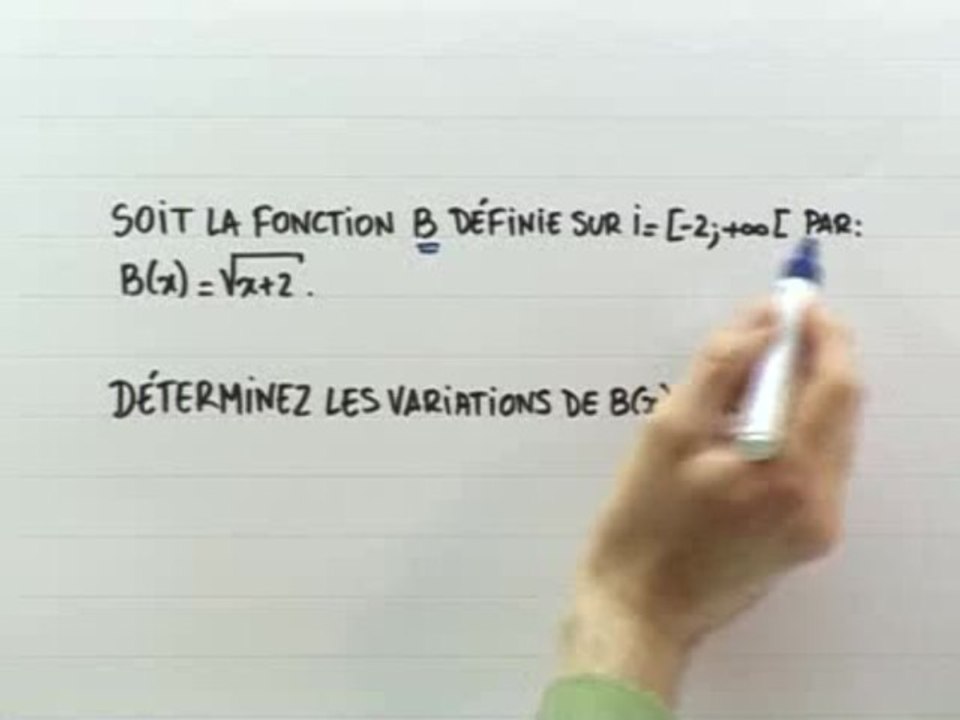 SOIT LA FONCTION B DÉFINIE SUR i=[-2;+∞[ PAR:
B(x)=√x+2.
DÉTERMINEZ LES VARIATIONS DE B(x)